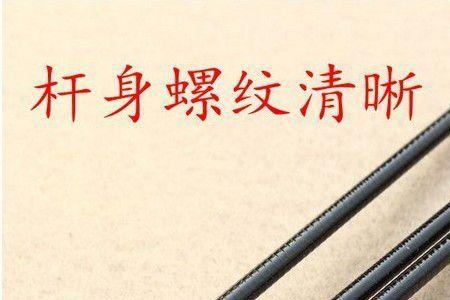 杆身螺纹清晰